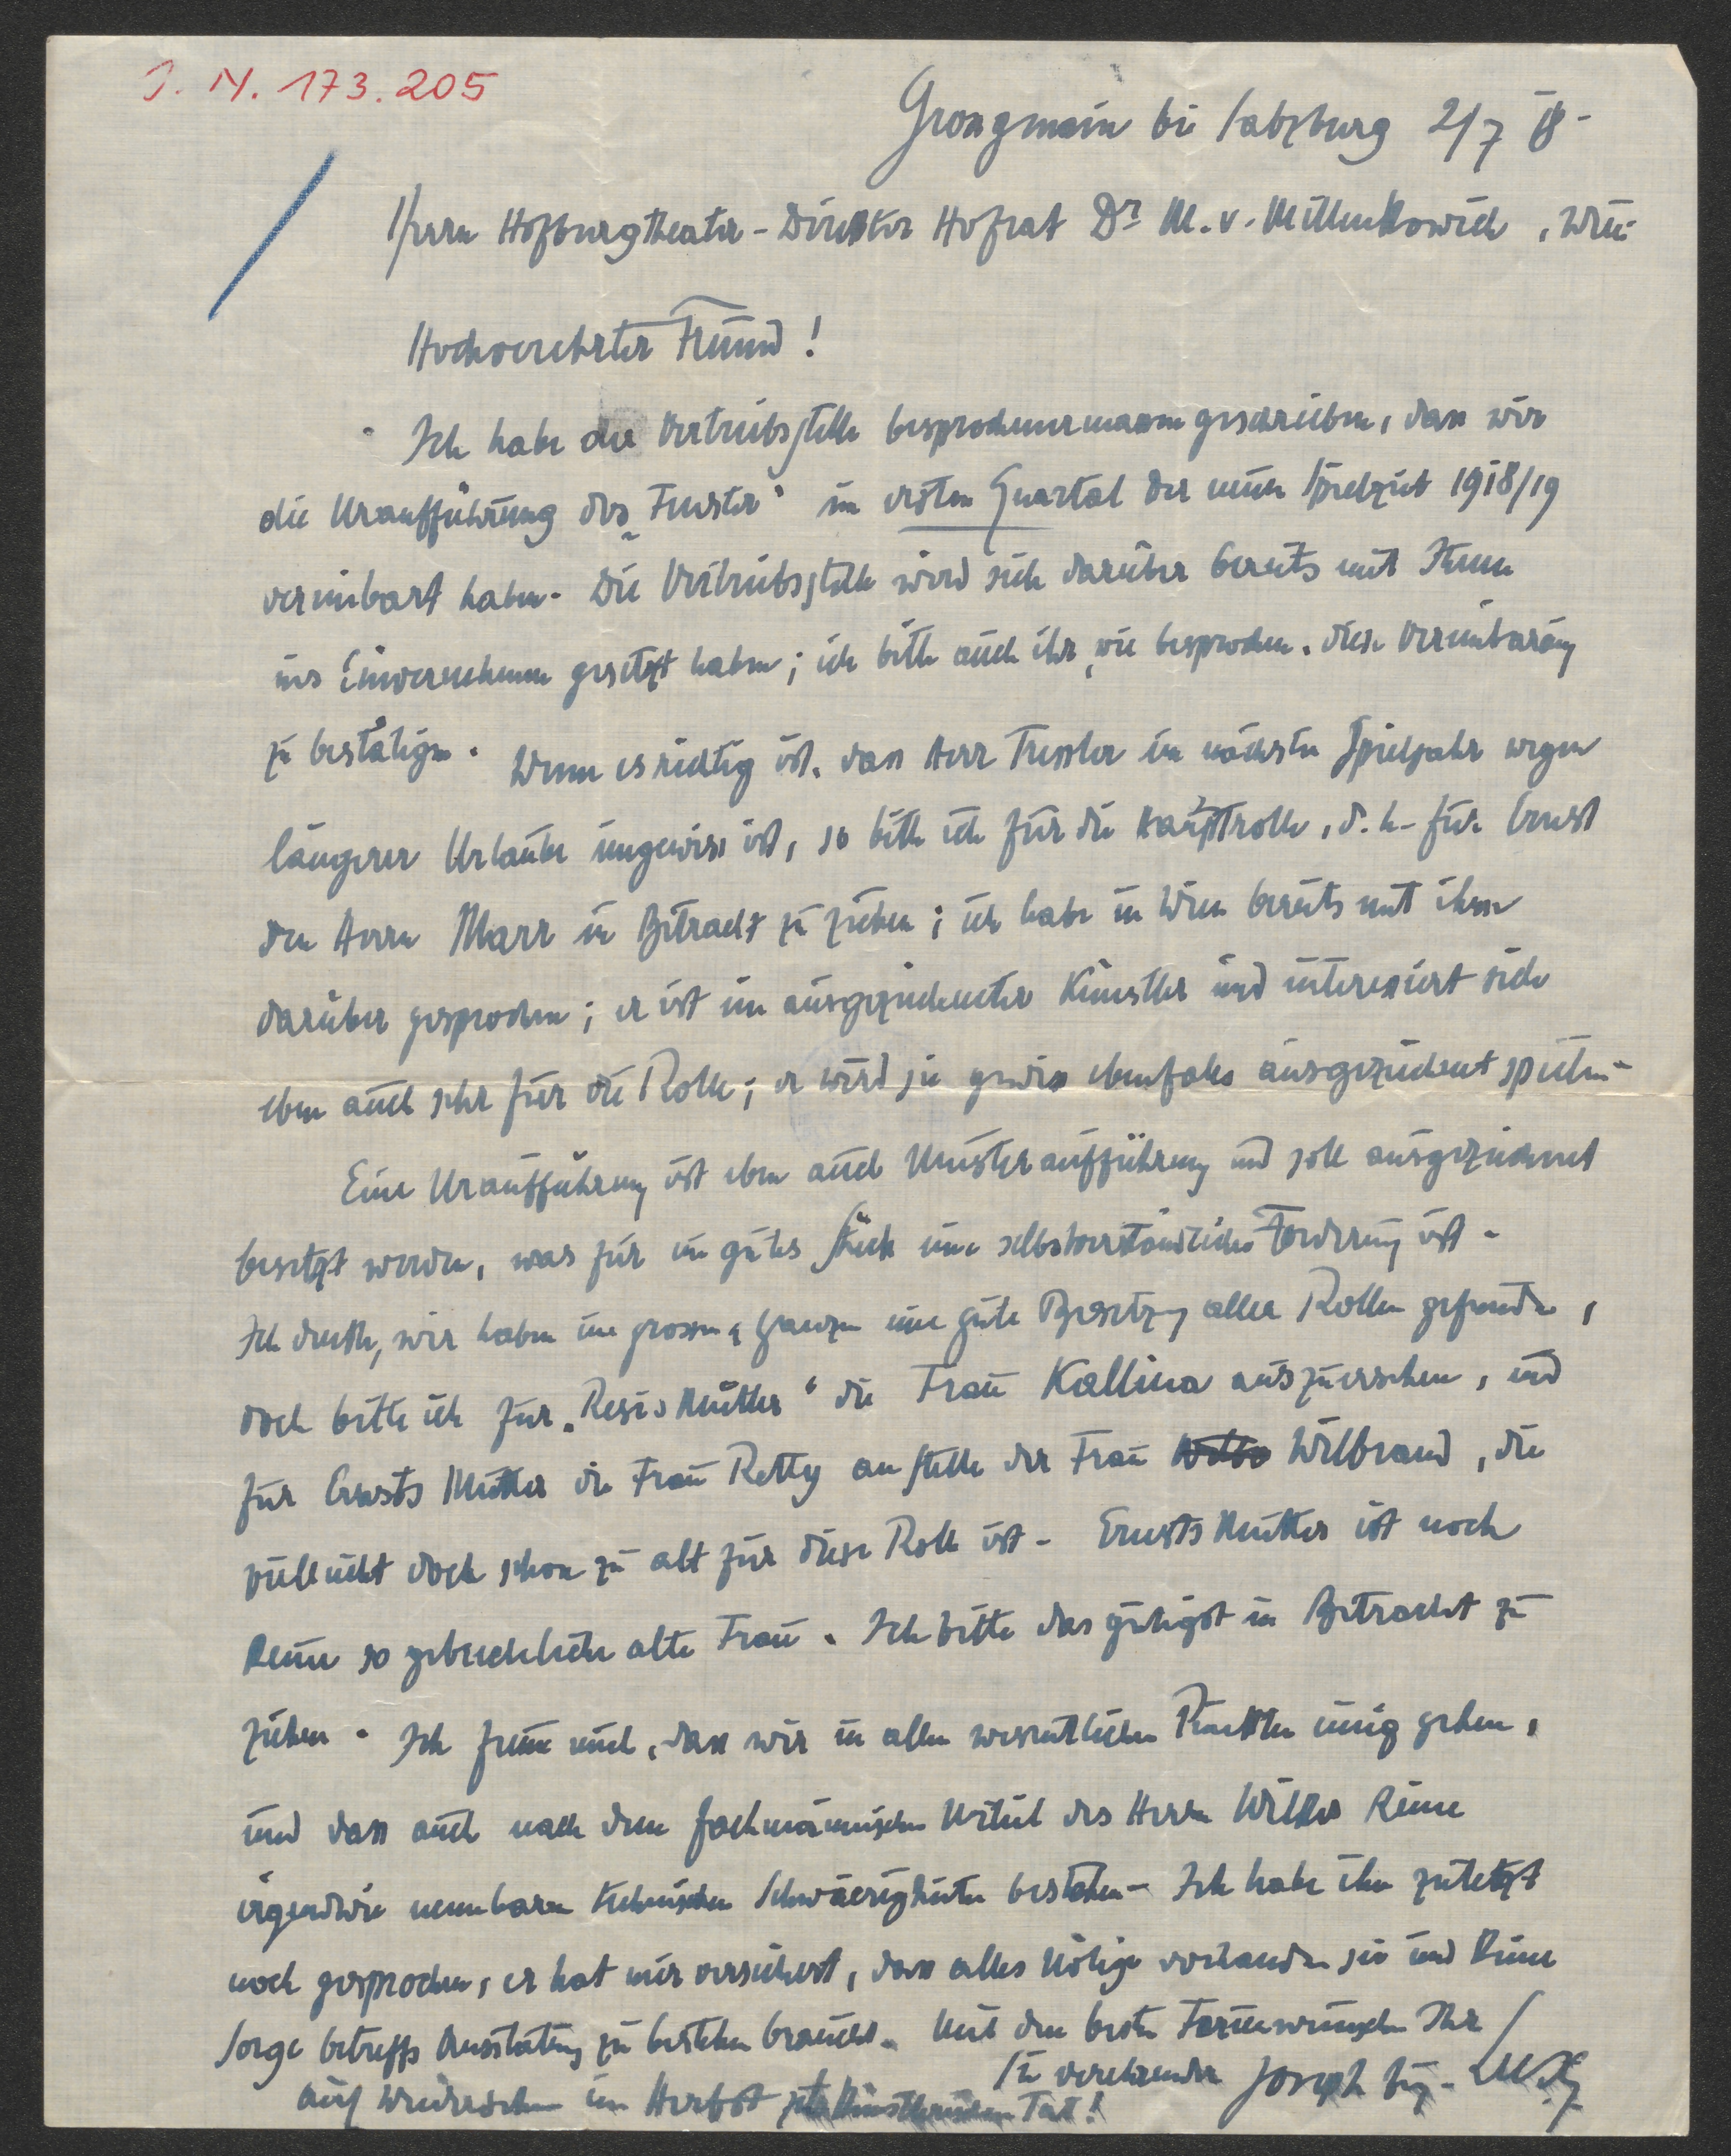 J. N. 173.205
Grossgmain bei Salzburg 2/7 18 -
Herrn Hofburgtheater-Direktor Hofrat Dr M. v. Millenkovich, Wien
Hochverehrter Freund!
Ich habe der Vertriebsstelle besprochenermassen geschrieben, dass wir
die Uraufführung des „Fenster“ im ersten Quartal der neuen Spielzeit 1918/19
vereinbart haben. Die Vertriebsstelle wird sich darüber bereits mit Ihnen
ins Einvernehmen gesetzt haben; ich bitte auch ihr, wie besprochen, diese Vereinbarung
zu bestätigen. Wenn es richtig ist, dass Herr Tressler im nächsten Spieljahr wegen
längerer Urlaube ungewiss ist, so bitte ich für die Hauptrolle, d. h. für Ernst
den Herrn Marr in Betracht zu ziehen; ich habe in Wien bereits mit ihm
darüber gesprochen; er ist ein ausgezeichneter Künstler und interessiert sich
eben auch sehr für die Rolle; er wird sie gewiss ebenfalls ausgezeichnet spielen -
Eine Uraufführung ist eben auch Musteraufführung und soll ausgezeichnet
besetzt werden, was für ein gutes Stück eine selbstverständliche Forderung ist -
Ich denke, wir haben im grossen u ganzen eine gute Besetzung aller Rollen gefunden,
doch bitte ich für „Resis Mutter“ die Frau Kallina auszuersehen, und
für Ernsts Mutter die Frau Retty an Stelle der Frau Wilbrand, die
vielleicht doch schon zu alt für diese Rolle ist - Ernsts Mutter ist noch
keine so gebrechliche alte Frau. Ich bitte das gütigst in Betracht zu
ziehen. Ich freue mich, dass wir in allen wesentlichen Punkten einig gehen,
und dass auch nach dem fachmännischen Urteil des Herrn Wilke keine
irgendwie nennbaren technischen Schwierigkeiten bestehen - Ich habe ihn zuletzt
noch gesprochen, er hat mir versichert, dass alles Nötige vorhanden sei und keine
Sorge betreffs Ausstattung zu bestehen braucht. Mit den besten Ferienwünschen Ihr
Sie verehrender Joseph Aug. Lux
auf Wiedersehen im Herbst zur künstlerischen Tat!